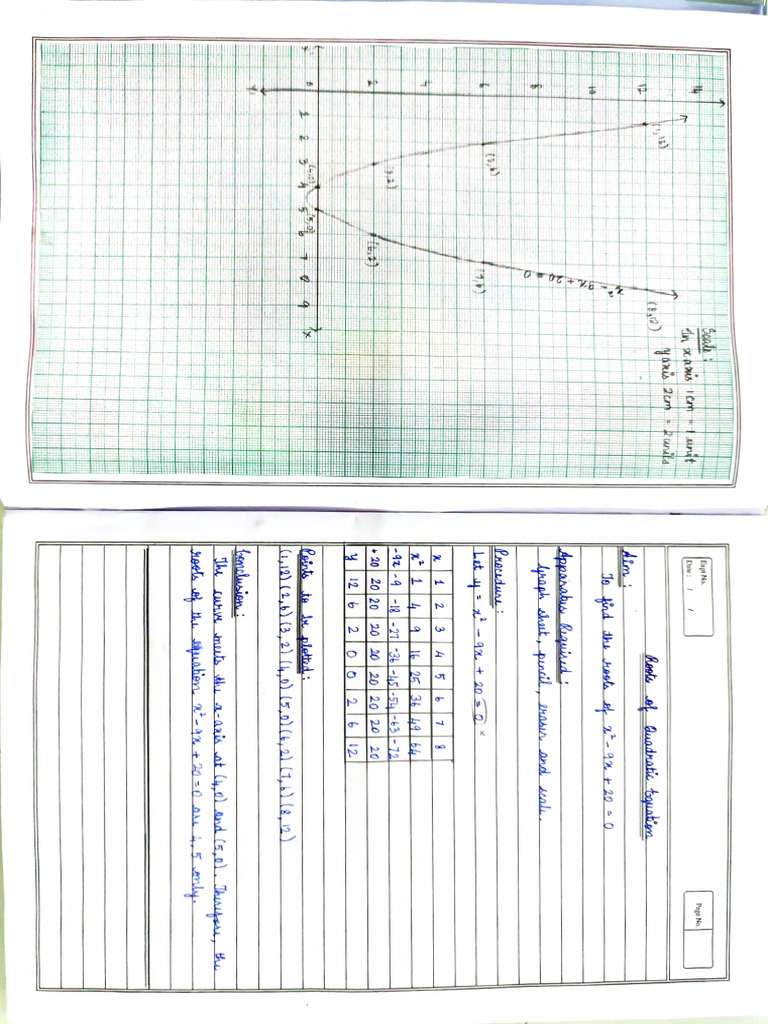 Scale:
In x axis 1cm = 1 unit
y axis 2cm = 2 units
14
12
10
8
6
4
2
0
1
2
3
4
5
6
7
8
9
x
(1,12)
(2,6)
(3,2)
(4,0)
(5,0)
(6,2)
(7,6)
(8,12)
x² - 9x + 20 = 0
Expt No.
Date : / /
Page No.
Roots of Quadratic Equation
Aim:
To find the roots of x² - 9x + 20 = 0
Apparatus Required:
Graph sheet, pencil, eraser and scale.
Procedure:
Let y = x² - 9x + 20 = 0 x
x 1 2 3 4 5 6 7 8
x² 1 4 9 16 25 36 49 64
-9x -9 -18 -27 -36 -45 -54 -63 -72
+20 20 20 20 20 20 20 20 20
y 12 6 2 0 0 2 6 12
Points to be plotted:
(1,12) (2,6) (3,2) (4,0) (5,0) (6,2) (7,6) (8,12)
Conclusion:
The curve meets the x-axis at (4,0) and (5,0). Therefore, the
roots of the equation x² - 9x + 20 = 0 are 4, 5 only.